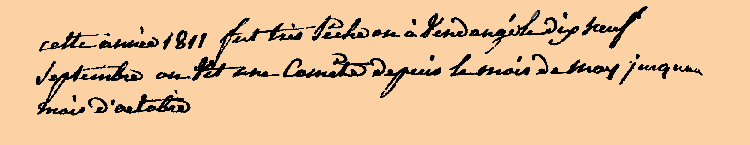 cette année 1811 fut très Sèche on à Vendangé le dix neuf
Septembre on Vit une Comète depuis le mois de may jusquau
mois d'octobre